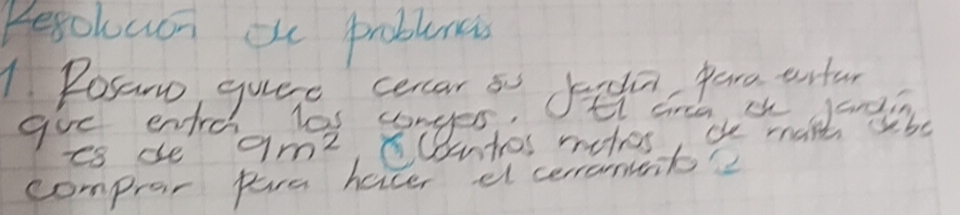 Resolución de problemas
1. Rosario quiere cercar su jardín para evitar
que entren los conejos. El área de jardín
es de 9m² ¿Cuantos metros de malla debe
comprar para hacer el cerramiento?